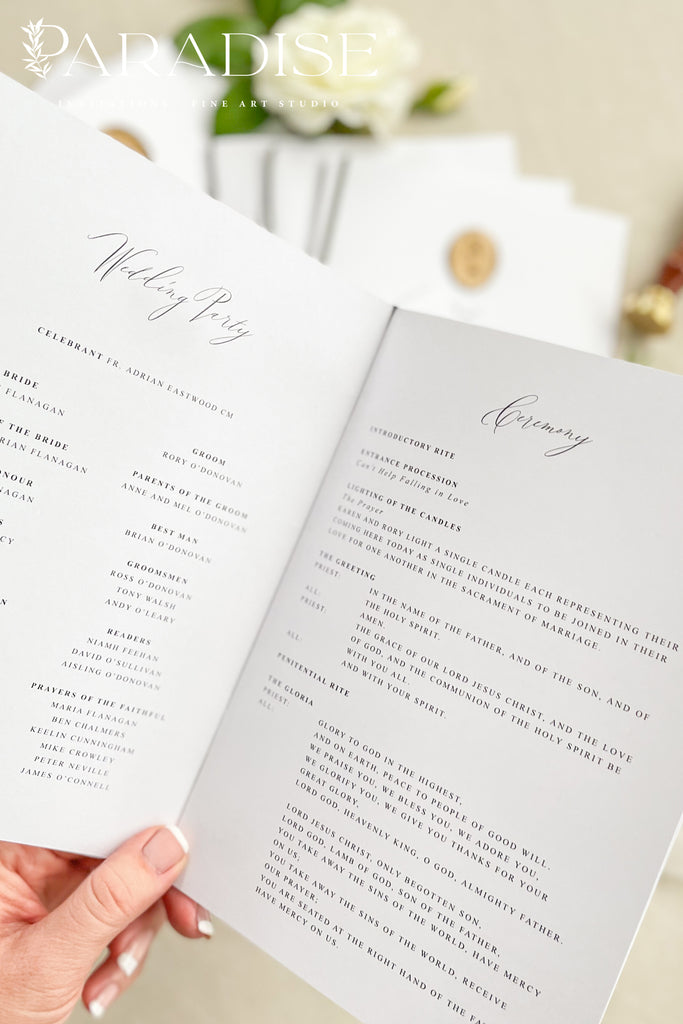 PARADISE
INVITATIONS FINE ART STUDIO
Wedding Party
CELEBRANT FR. ADRIAN EASTWOOD CM
BRIDE
FLANAGAN
OF THE BRIDE
FLANAGAN
GROOM
RORY O'DONOVAN
PARENTS OF THE GROOM
ANNE AND MEL O'DONOVAN
BEST MAN
BRIAN O'DONOVAN
GROOMSMEN
ROSS O'DONOVAN
TONY WALSH
ANDY O'LEARY
READERS
NIAMH FEEHAN
DAVID O'SULLIVAN
AISLING O'DONOVAN
PRAYERS OF THE FAITHFUL
MARIA FLANAGAN
BEN CHALMERS
KEELIN CUNNINGHAM
MIKE CROWLEY
PETER NEVILLE
JAMES O'CONNELL
Ceremony
INTRODUCTORY RITE
ENTRANCE PROCESSION
Can't Help Falling in Love
LIGHTING OF THE CANDLES
The Prayer
KAREN AND RORY LIGHT A SINGLE CANDLE EACH REPRESENTING THEIR
COMING HERE TODAY AS SINGLE INDIVIDUALS TO BE JOINED IN THEIR
LOVE FOR ONE ANOTHER IN THE SACRAMENT OF MARRIAGE.
THE GREETING
PRIEST: IN THE NAME OF THE FATHER, AND OF THE SON, AND OF
THE HOLY SPIRIT.
ALL: AMEN.
PRIEST: THE GRACE OF OUR LORD JESUS CHRIST, AND THE LOVE
OF GOD, AND THE COMMUNION OF THE HOLY SPIRIT BE
WITH YOU ALL.
ALL: AND WITH YOUR SPIRIT.
PENITENTIAL RITE
THE GLORIA
PRIEST: GLORY TO GOD IN THE HIGHEST,
ALL: AND ON EARTH, PEACE TO PEOPLE OF GOOD WILL.
WE PRAISE YOU, WE BLESS YOU, WE ADORE YOU,
WE GLORIFY YOU, WE GIVE YOU THANKS FOR YOUR
GREAT GLORY,
LORD GOD, HEAVENLY KING, O GOD, ALMIGHTY FATHER.
LORD JESUS CHRIST, ONLY BEGOTTEN SON,
LORD GOD, LAMB OF GOD, SON OF THE FATHER,
YOU TAKE AWAY THE SINS OF THE WORLD, HAVE MERCY
ON US,
YOU TAKE AWAY THE SINS OF THE WORLD, RECEIVE
OUR PRAYER;
YOU ARE SEATED AT THE RIGHT HAND OF THE
HAVE MERCY ON US.